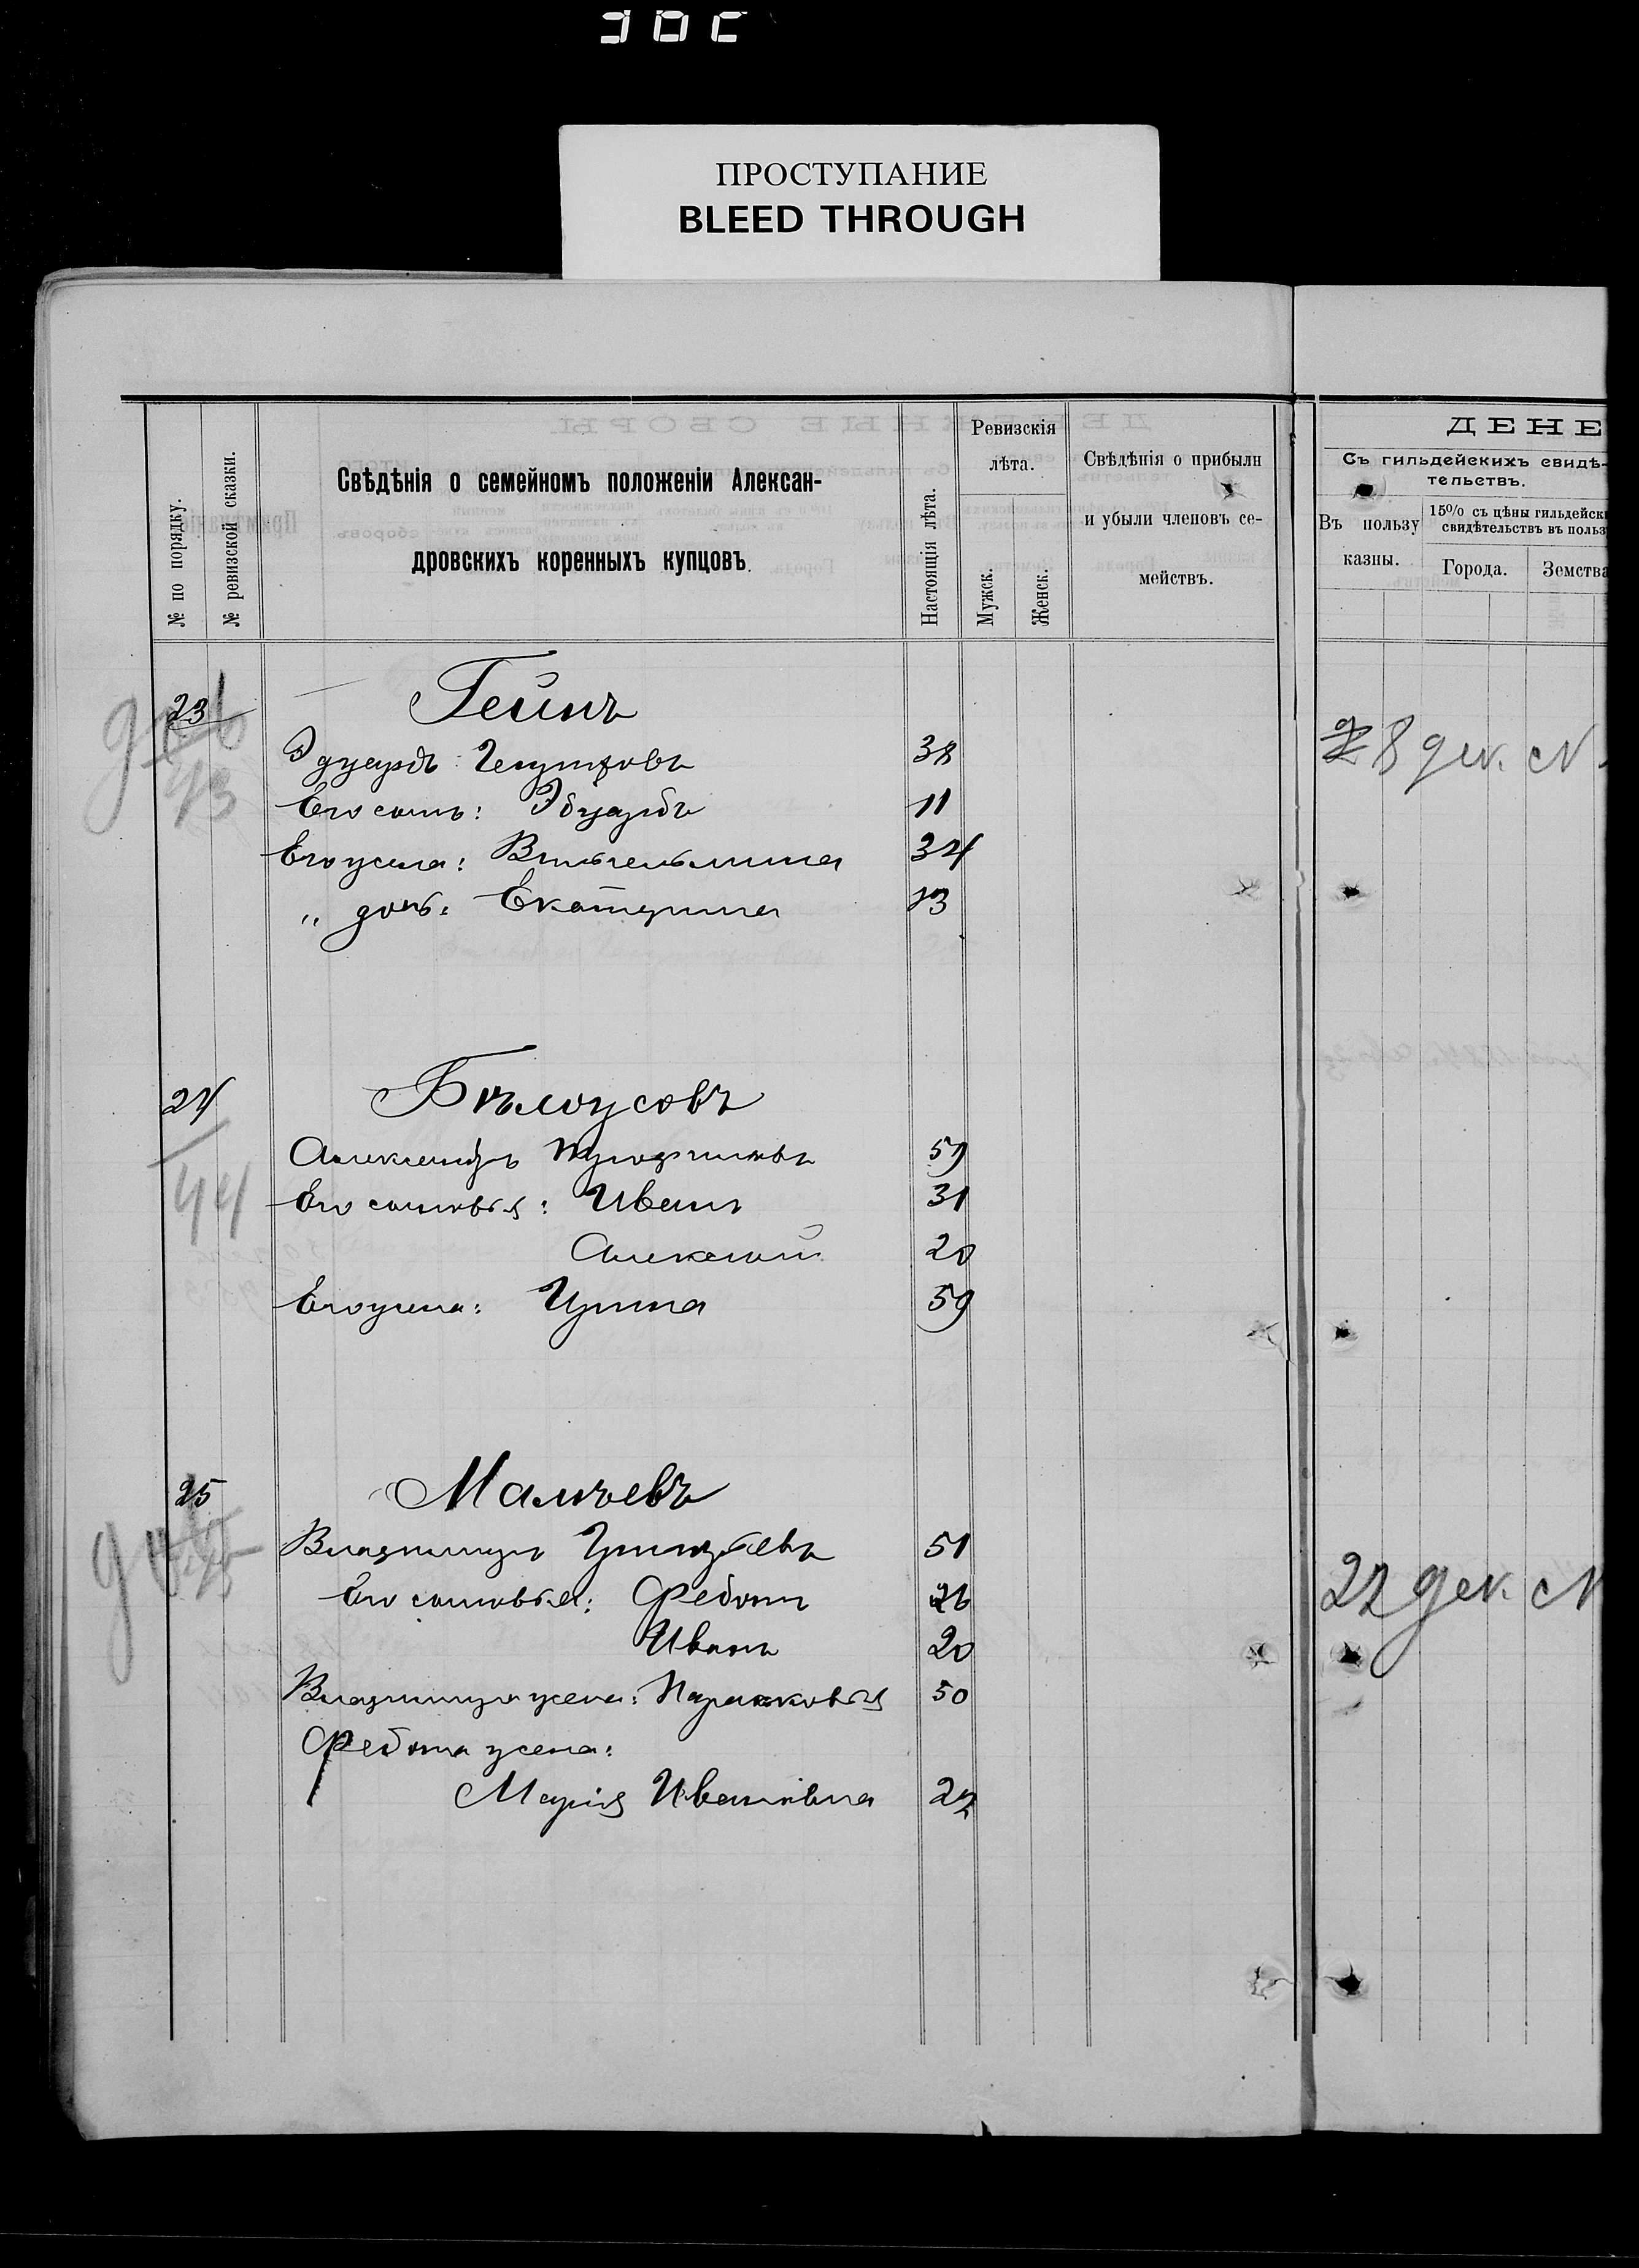 ПРОСТУПАНИЕ
BLEED THROUGH
№ по порядку.
№ ревизской сказки.
Свѣдѣнія о семейномъ положеніи Алексан-
дровскихъ коренныхъ купцовъ.
Настоящія лѣта.
Ревизскія
лѣта.
Мужск.
Женск.
Свѣдѣнія о прибыли
и убыли членовъ се-
мействъ.
ДЕНЕ
Съ гильдейскихъ свидѣ-
тельствъ.
Въ пользу
казны.
15% съ цѣны гильдейск
свидѣтельствъ въ польз
Города.
Земства
23 Гейнъ
43
Эдуардъ 38 8 дек.
Его сынъ: Эдуардъ 11
Его жена: Вильгельмина 34
„ дочь: Екатерина 13
24 Бѣлоусовъ
44
Александръ Трофимовъ 59
Его сыновья: Иванъ 31
Алексѣй 20
Его жена: Ирина 59
25 Мамчевъ
45
Владимиръ Григорьевъ 51 22 дек.
Его сыновья: Федотъ 26
Иванъ 20
Владимира жена: Парасковья 50
Федота жена:
Марія Ивановна 22